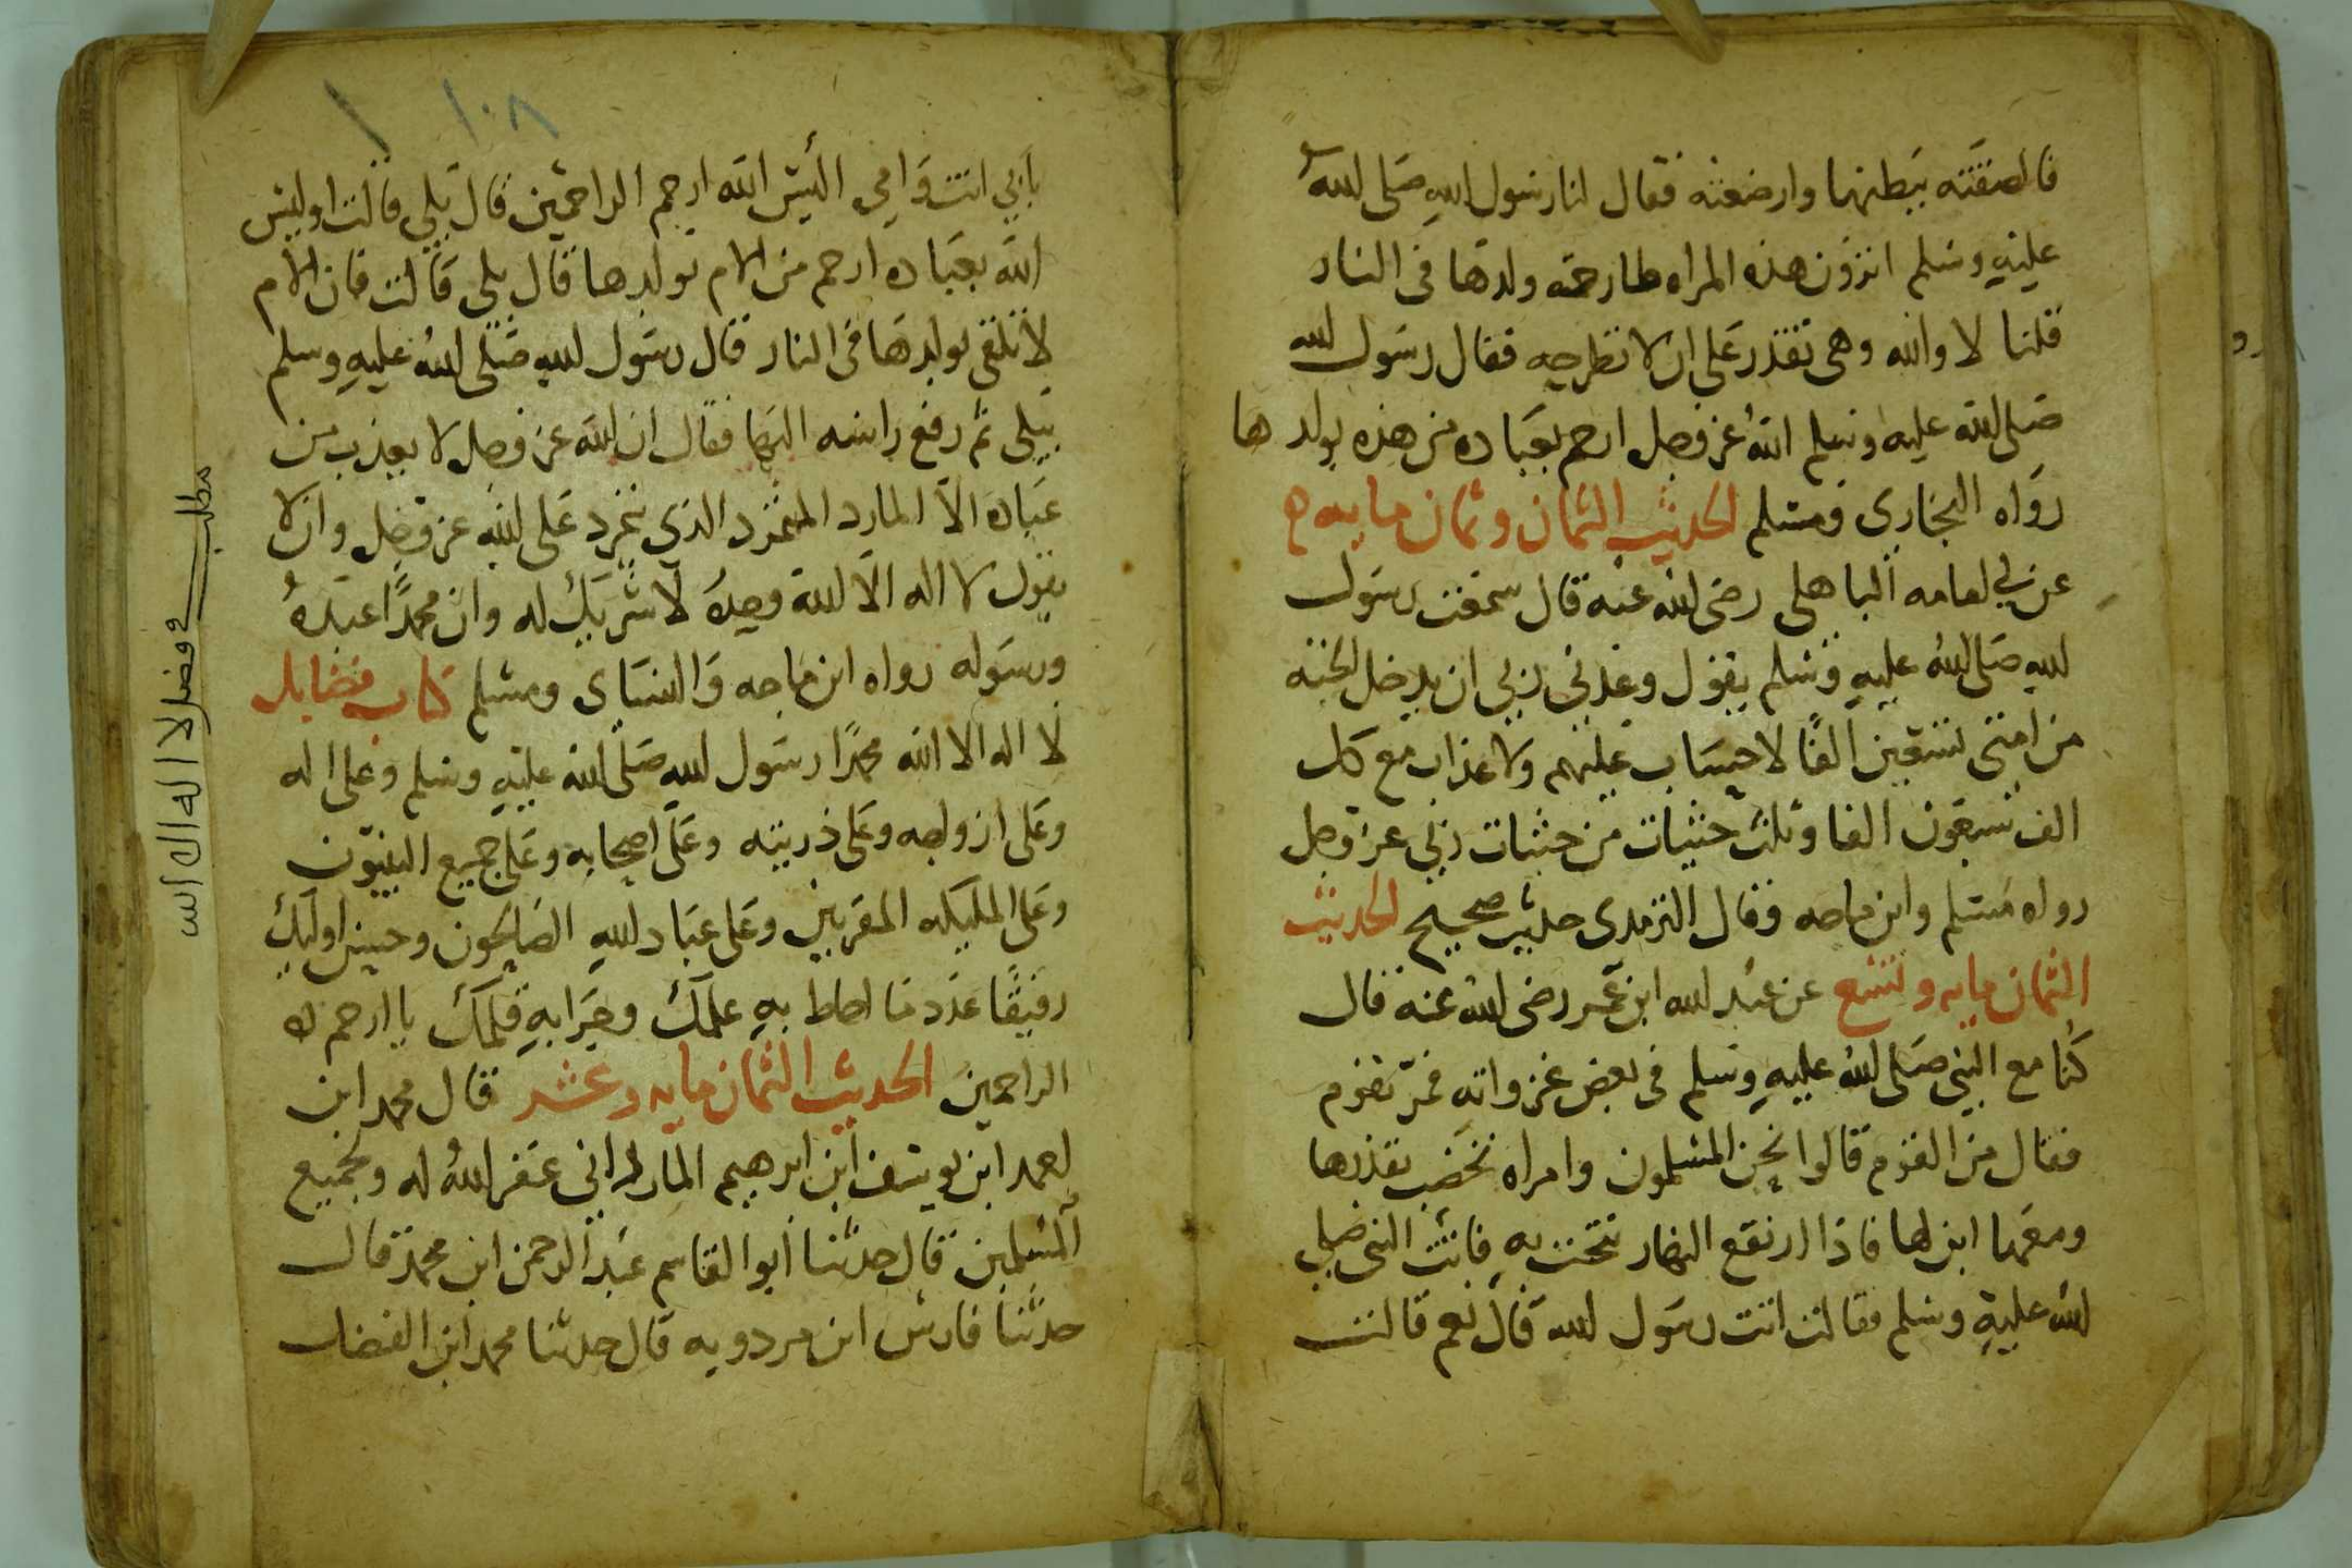 فالصقته ببطنها وارضعته فقال لنا رسول الله صلى الله
عليه وسلم اترون هذه المراه طارحة ولدها في النار
قلنا لا والله وهي تقدر على ان لا تطرحه فقال رسول الله
صلى الله عليه وسلم الله عز وجل ارحم بعباده من هذه بولدها
رواه البخاري ومسلم الحديث الثمان وثمان مايه
عن ابي امامه الباهلي رضي الله عنه قال سمعت رسول
الله صلى الله عليه وسلم يقول وعدني ربي ان يدخل الجنه
من امتي سبعين الفا لا حساب عليهم ولا عذاب مع كل
الف سبعون الفا وثلث حثيات من حثيات ربي عز وجل
رواه مسلم وابن ماجه وقال الترمدي حديث صحيح الحديث
الثمان مايه وتسع عن عبد الله ابن عمر رضي الله عنه قال
كنا مع النبي صلى الله عليه وسلم في بعض غزواته فمر بقوم
فقال من القوم قالوا نحن المسلمون وامراه تحضب بقدرها
ومعها ابن لها فاذا ارتفع النهار تنحت به فاتت النبي صلى
الله عليه وسلم فقالت انت رسول الله قال نعم قالت
١٠٨
بابي انت وامي اليس الله ارحم الراحمين قال بلى قالت اوليس
الله بعباده ارحم من الام بولدها قال بلى قالت فان الام
لا تلقي بولدها في النار قال رسول الله صلى الله عليه وسلم
بلى ثم رفع راسه اليها فقال ان الله عز وجل لا يعذب من
عباده الا المارد المتمرد الذي تمرد على الله عز وجل وان لا
يقول لا اله الا الله وحده لا شريك له وان محمدا عبده
ورسوله رواه ابن ماجه والنساى ومسلم كتاب فضايل
لا اله الا الله محمدا رسول الله صلى الله عليه وسلم وعلى اله
وعلى ازواجه وعلى ذريته وعلى اصحابه وعلى جميع النبيون
وعلى المليكه المقربين وعلى عباد الله الصالحون وحسن اوليك
رفيقا عدد ما احاط به علمك وجرا به قلمك يا ارحم
الراحمين الحديث الثمان مايه وعشر قال محمد ابن
احمد ابن يوسف ابن ابرهيم غفر الله له ولجميع
المسلمين قال حدثنا ابوا القاسم عبد الرحمن ابن محمد قال
حدثنا فارس ابن مردويه قال حدثنا محمد ابن الفضل
مطلب في فضل لا اله الا الله